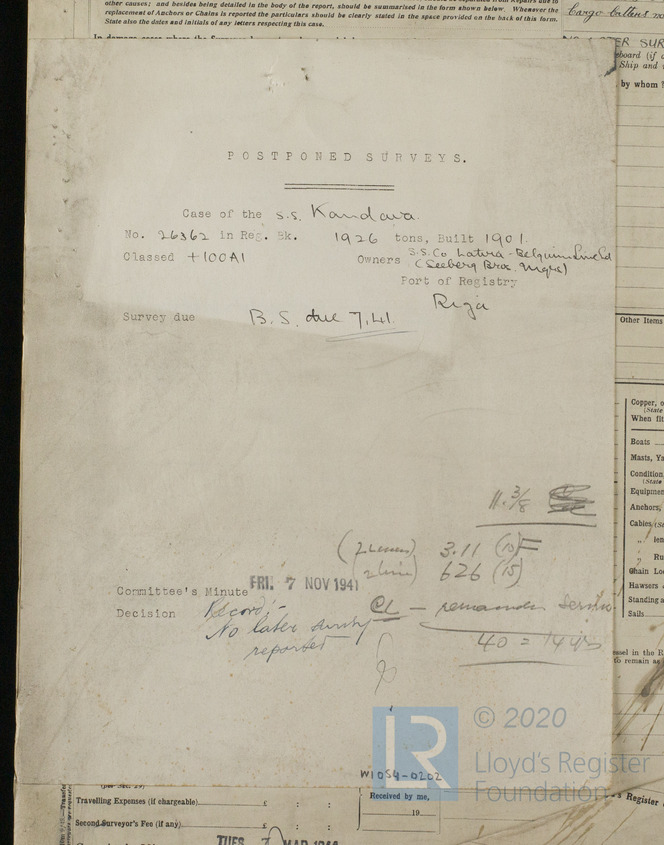 other causes; and besides being detailed in the body of the report, should be summarised in the form shown below. Whenever the
replacement of Anchors or Chains is reported the particulars should be clearly stated in the space provided on the back of this form.
State also the dates and initials of any letters respecting this case.
Cargo battens
by whom
POSTPONED SURVEYS.
Case of the s.s. Kandava
No. 26362 in Reg. Bk. 1926 tons, Built 1901.
Classed +100A1
Owners S.S. Co Latvia-Belgium Line Ld
(Seeberg Bros. Mgrs)
Port of Registry
Riga
Survey due B.S. due 7,41.
Other Items
Copper, o
(State
When fit
Boats
Masts, Ya
Condition
(State
Equipme
Anchors,
Cables (St
„ len
„ Ru
Chain Lo
Hawsers
Standing a
Sails
11. 3/8
3.11 (10)F
626 (15)
Committee's Minute FRI. 7 NOV 1941
Decision Record:-
No later survey
reported
CL – remainder
40 = 14 yrs
to remain as
© 2020
Lloyd's Register
Foundation
W1054-0202
Travelling Expenses (if chargeable) £ : :
Second Surveyor's Fee (if any) £ : :
Received by me,
19
's Register
TUES. 7 MAR